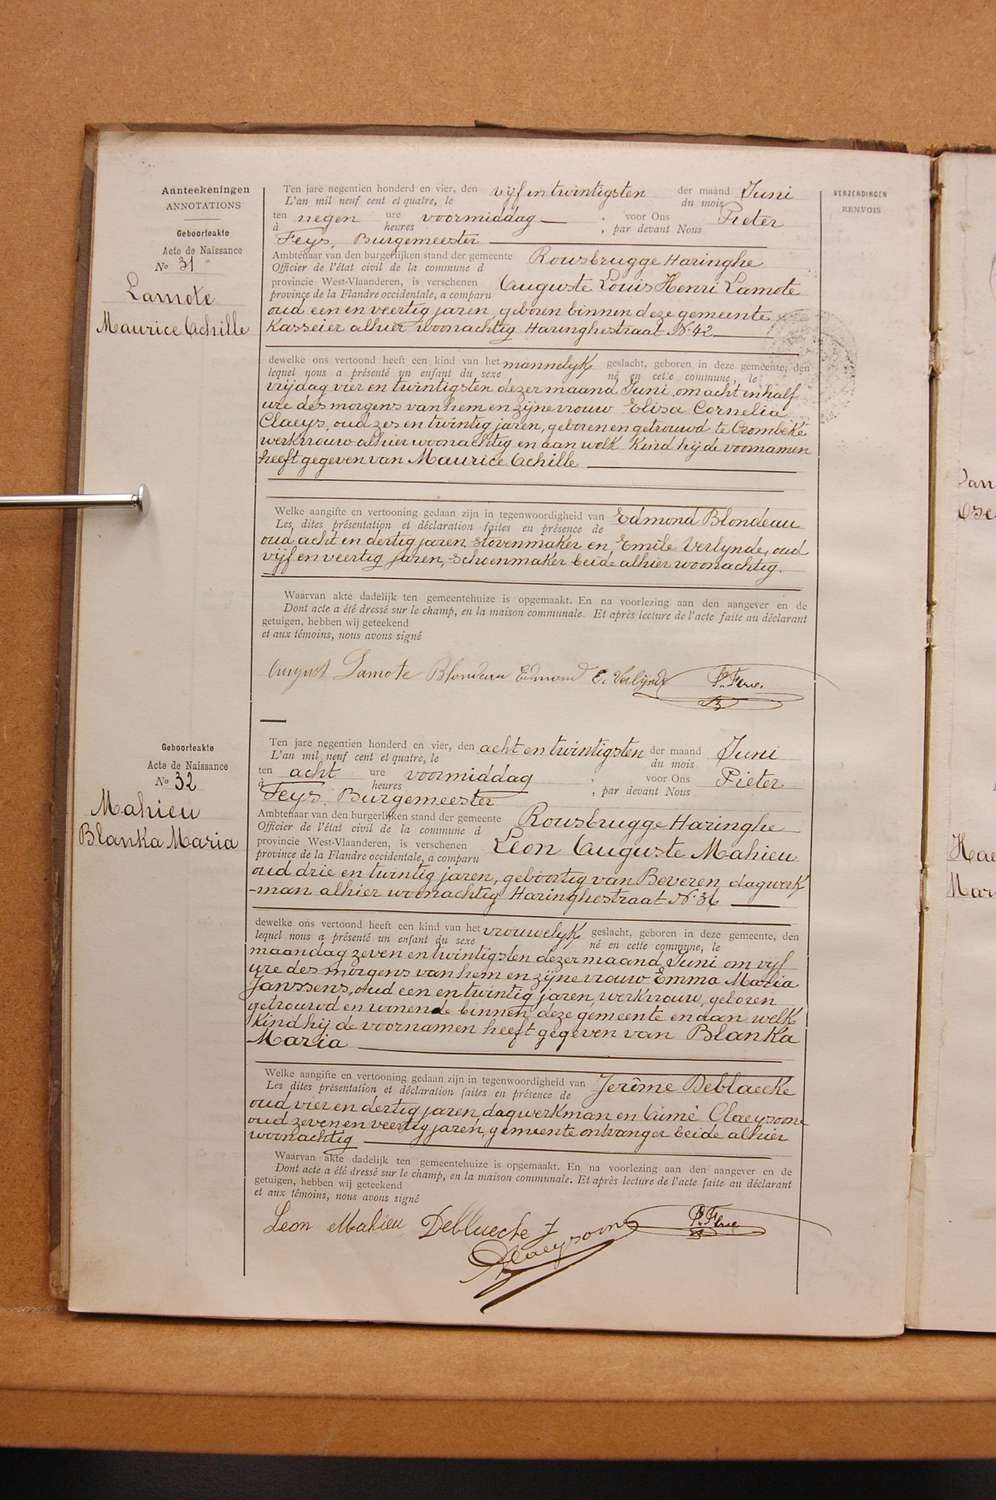 Aanteekeningen
ANNOTATIONS
Geboorteakte
Acte de Naissance
No 31
Lamote
Maurice Achille
Ten jare negentien honderd en vier, den vijf en twintigsten der maand Juni
L'an mil neuf cent et quatre, le du mois
ten negen ure voormiddag ; voor Ons Pieter
à heures , par devant Nous
Feys, Burgemeester
Ambtenaar van den burgerlijken stand der gemeente Rousbrugge Haringhe
Officier de l'état civil de la commune d
provincie West-Vlaanderen, is verschenen Auguste Louis Henri Lamote
province de la Flandre occidentale, a comparu
oud een en veertig jaren, geboren binnen deze gemeente
Kasseier alhier woonachtig Haringhestraat No 42
dewelke ons vertoond heeft een kind van het mannelyk geslacht, geboren in deze gemeente, den
lequel nous a présenté un enfant du sexe né en cette commune, le
vrijdag vier en twintigsten dezer maand Juni, om acht en half
ure des morgens van hem en zijne vrouw Elisa Cornelia
Claeys, oud zes en twintig jaren, geboren en getrouwd te Crombeke
werkvrouw alhier woonachtig en aan welk Kind hij de voornamen
heeft gegeven van Maurice Achille
Welke aangifte en vertooning gedaan zijn in tegenwoordigheid van Edmond Blondeau
Les dites présentation et déclaration faites en présence de
oud acht en dertig jaren stovenmaker en Emile Verlynde, oud
vijf en veertig jaren, schoenmaker beide alhier woonachtig.
Waarvan akte dadelijk ten gemeentehuize is opgemaakt. En na voorlezing aan den aangever en de
Dont acte a été dressé sur le champ, en la maison communale. Et après lecture de l'acte faite au déclarant
getuigen, hebben wij geteekend
et aux témoins, nous avons signé
August Lamote Blondeau Edmond E. Verlynde P. Feys.
Geboorteakte
Acte de Naissance
No 32
Mahieu
Blanka Maria
Ten jare negentien honderd en vier, den acht en twintigsten der maand Juni
L'an mil neuf cent et quatre, le du mois
ten acht ure voormiddag ; voor Ons Pieter
à heures , par devant Nous
Feys, Burgemeester
Ambtenaar van den burgerlijken stand der gemeente Rousbrugge Haringhe
Officier de l'état civil de la commune d
provincie West-Vlaanderen, is verschenen Leon Auguste Mahieu
province de la Flandre occidentale, a comparu
oud drie en twintig jaren, geboortig van Beveren dagwerk
-man alhier woonachtig Haringhestraat No 36
dewelke ons vertoond heeft een kind van het vrouwelyk geslacht, geboren in deze gemeente, den
lequel nous a présenté un enfant du sexe né en cette commune, le
maandag zeven en twintigsten dezer maand Juni om vijf
ure des morgens van hem en zijne vrouw Emma Maria
Janssens, oud een en twintig jaren, werkvrouw, geboren
getrouwd en wonende binnen deze gemeente en aan welk
Kind hij de voornamen heeft gegeven van Blanka
Maria
Welke aangifte en vertooning gedaan zijn in tegenwoordigheid van Jerôme Deblaecke
Les dites présentation et déclaration faites en présence de
oud vier en dertig jaren, dagwerkman en Aimé Claeysoone
oud zeven en veertig jaren, gemeente ontvanger beide alhier
woonachtig
Waarvan akte dadelijk ten gemeentehuize is opgemaakt. En na voorlezing aan den aangever en de
Dont acte a été dressé sur le champ, en la maison communale. Et après lecture de l'acte faite au déclarant
getuigen, hebben wij geteekend
et aux témoins, nous avons signé
Leon Mahieu Deblaecke J P. Feys
A Claeysoone
VERZENDINGEN
RENVOIS